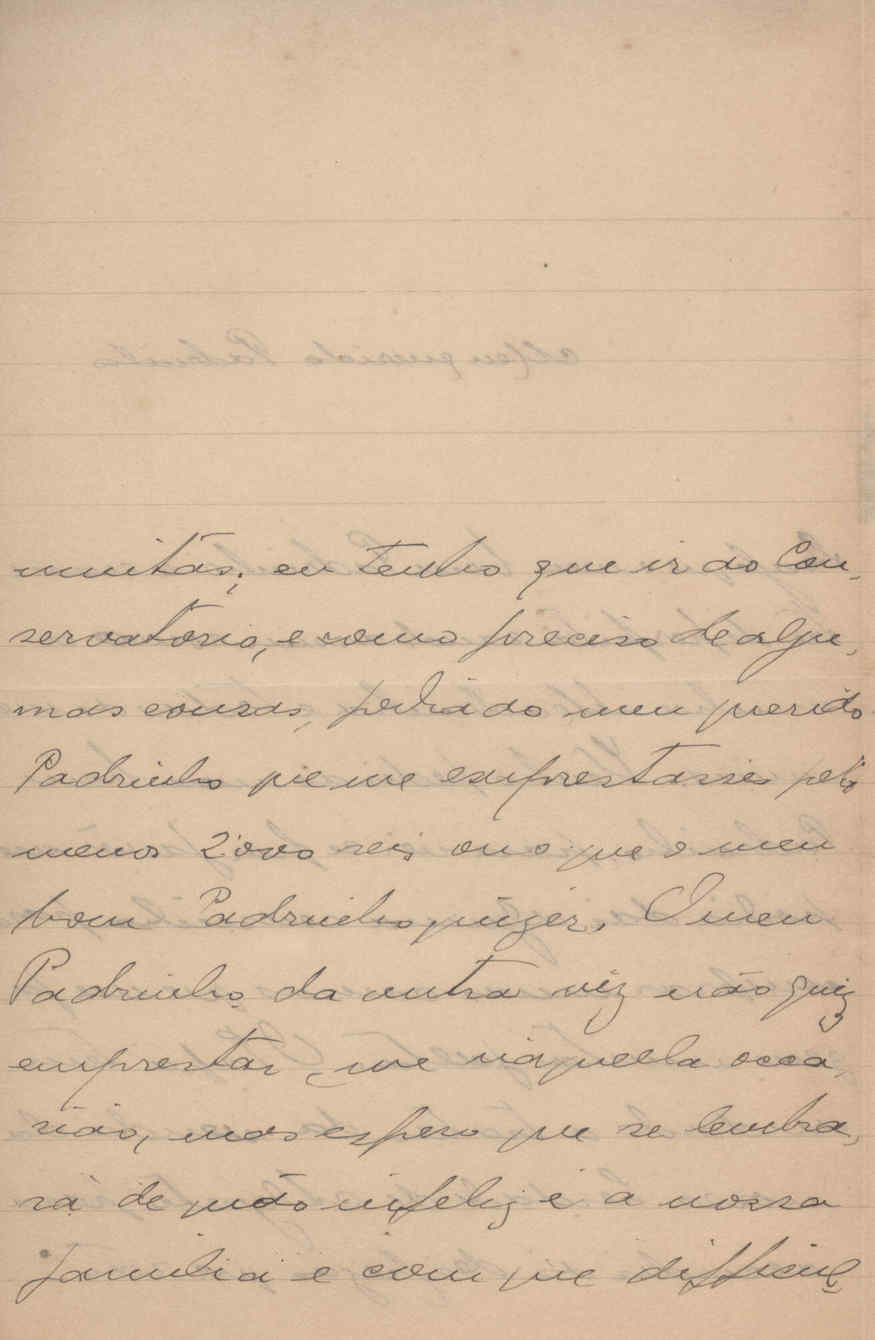 muitas; eu tenho que ir ao Con-
servatorio, e como preciso de algu-
mas cousas, pedia ao meu querido
Padrinho que me emprestasse pelo
menos 2000 reis ou o que o meu
bom Padrinho quizér. O meu
Padrinho da outra vez não quiz
emprestar-me naquella occa-
sião, mas espero que se lembra-
rá de quão infeliz é a nossa
familia e com que difficul